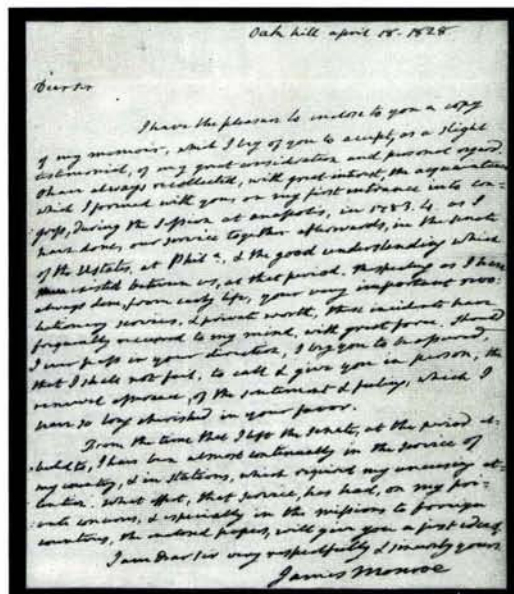 Oak hill april 18. 1828
Dear Sir
I have the pleasure to enclose to you a copy
of my memoir, which I beg of you to accept, as a slight
testimonial, of my great consideration and personal regard.
I have always recollected, with great interest, the acquaintance
which I formed with you, on my first entrance into con-
gress, during the session at anapolis, in 1783.4. as I
have done, our service together afterwards, in the senate
of the UStates, at Phila., & the good understanding which
existed between us, at that period. Respecting as I have
always done, from early life, your very important revo-
lutionary services, & private worth, these incidents have
frequently recurred to my mind, with great force. Should
I ever pass in your direction, I beg you to be assured,
that I shall not fail, to call & give you in person, the
renewed assurance, of the sentiment & feeling, which I
have so long cherished in your favor.
From the time that I left the senate, at the period al-
luded to, I have been almost continually in the service of
my country, & in stations, which required my unceasing at-
tention. What effect, that service, has had, on my pri-
vate concerns, & especially in the missions to foreign
countries, the enclosed papers, will give you a just idea of.
I am dear Sir very respectfully & sincerely yours
James Monroe